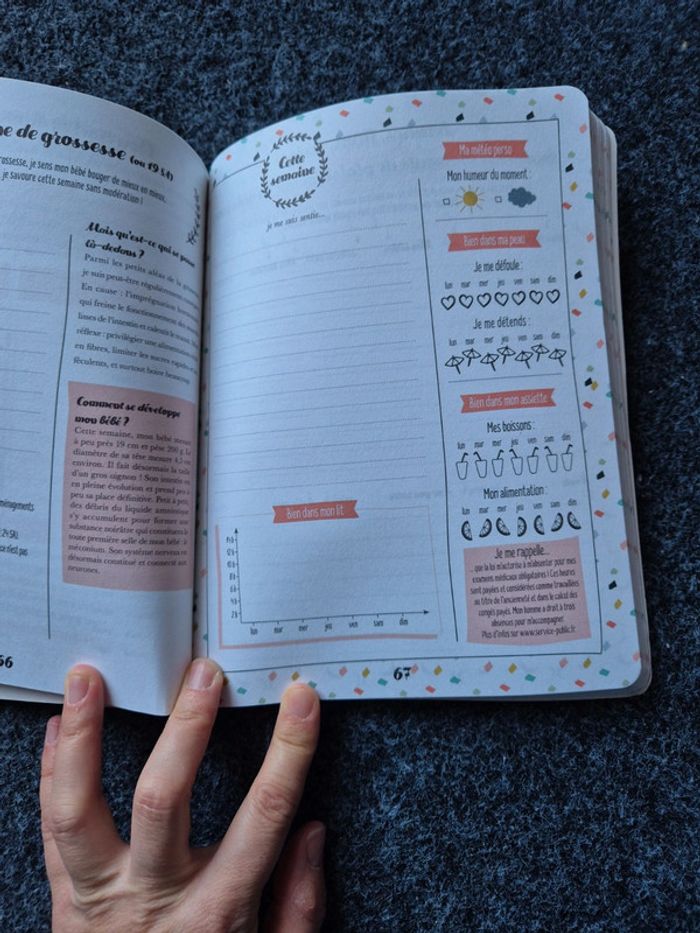 de grossesse (ou 19 SA)
grossesse, je sens mon bébé bouger de mieux en mieux,
je savoure cette semaine sans modération !
Mais qu'est-ce qui se passe
là-dedans ?
Parmi les petits aléas de la grossesse,
je suis peut-être régulièrement
En cause : l'imprégnation hormonale
qui freine le fonctionnement des muscles
lisses de l'intestin et ralentit le transit.
réflexe : privilégier une alimentation
en fibres, limiter les sucres rapides et
féculents, et surtout boire beaucoup.
Comment se développe
mon bébé ?
Cette semaine, mon bébé mesure
à peu près 19 cm et pèse 200 g. Le
diamètre de sa tête mesure 4,5 cm
environ. Il fait désormais la taille
d'un gros oignon ! Son intestin est
en pleine évolution et prend peu à
peu sa place définitive. Petit à petit,
des débris du liquide amniotique
s'y accumulent pour former une
substance noirâtre qui constituera la
toute première selle de mon bébé : le
méconium. Son système nerveux est
désormais constitué et connecté aux
neurones.
ménagements
n'est pas
66
Cette
semaine
je me suis sentie...
Bien dans mon lit
14 h
12 h
10 h
8 h
6 h
4 h
2 h
lun mar mer jeu ven sam dim
Ma météo perso
Mon humeur du moment :
Bien dans ma peau
Je me défoule :
lun mar mer jeu ven sam dim
Je me détends :
lun mar mer jeu ven sam dim
Bien dans mon assiette
Mes boissons :
lun mar mer jeu ven sam dim
Mon alimentation :
lun mar mer jeu ven sam dim
Je me rappelle...
... que la loi m'autorise à m'absenter pour mes
examens médicaux obligatoires ! Ces heures
sont payées et considérées comme travaillées
au titre de l'ancienneté et dans le calcul des
congés payés. Mon homme a droit à trois
absences pour m'accompagner.
Plus d'infos sur www.service-public.fr.
67